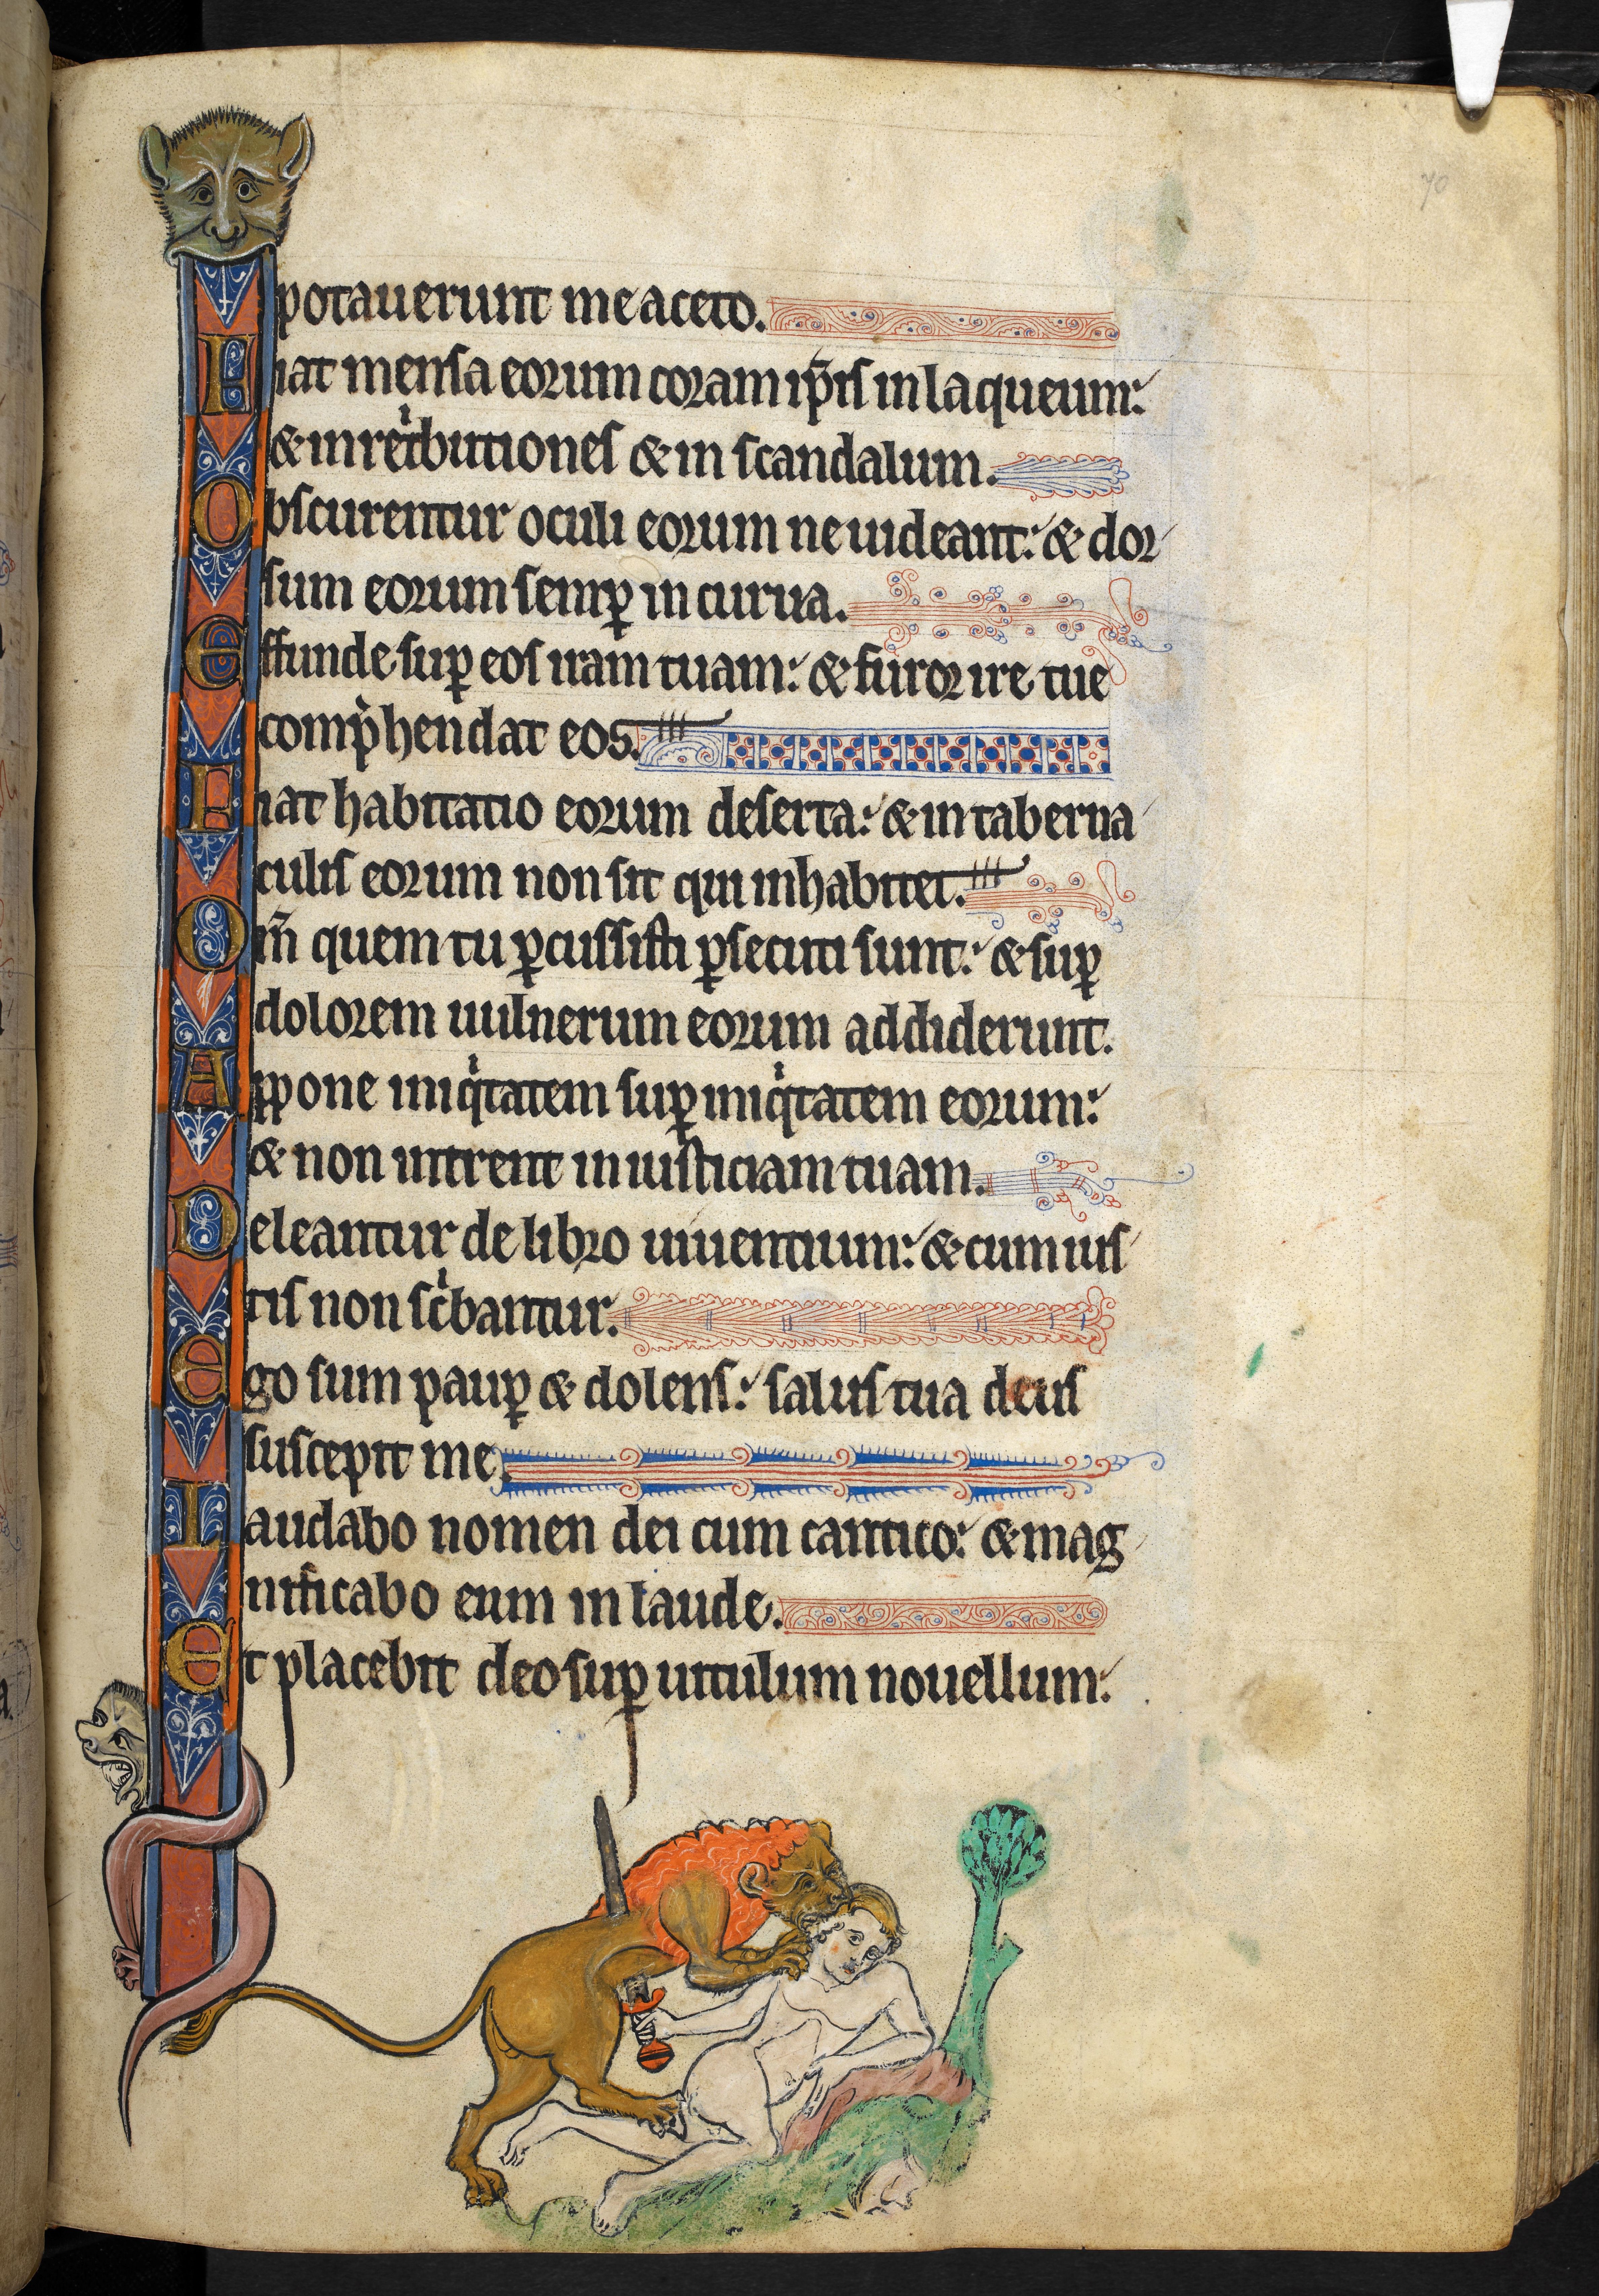 70
potauerunt me aceto.
Fiat mensa eorum coram ip̄is in laqueum:
& in retͥbutiones & in scandalum.
Obscurentur oculi eorum ne uideant: & dor
sum eorum semꝑ incurua.
Effunde suꝑ eos iram tuam: & furor ire tue
comp̍hendat eos.
Fiat habitatio eorum deserta: & in taberna
culis eorum non sit qui inhabitet.
Qm̄ quem tu ꝑcussisti ꝑsecuti sunt: & suꝑ
dolorem uulnerum eorum addiderunt.
Appone iniqͥtatem suꝑ iniqͥtatem eorum:
& non intrent in iusticiam tuam.
Deleantur de libro uiuentium: & cum ius
tis non scͥbantur.
Ego sum pauꝑ & dolens: salus tua deus
suscepit me.
Laudabo nomen dei cum cantico: & mag
nificabo eum in laude.
Et placebit deo suꝑ uitulum nouellum: